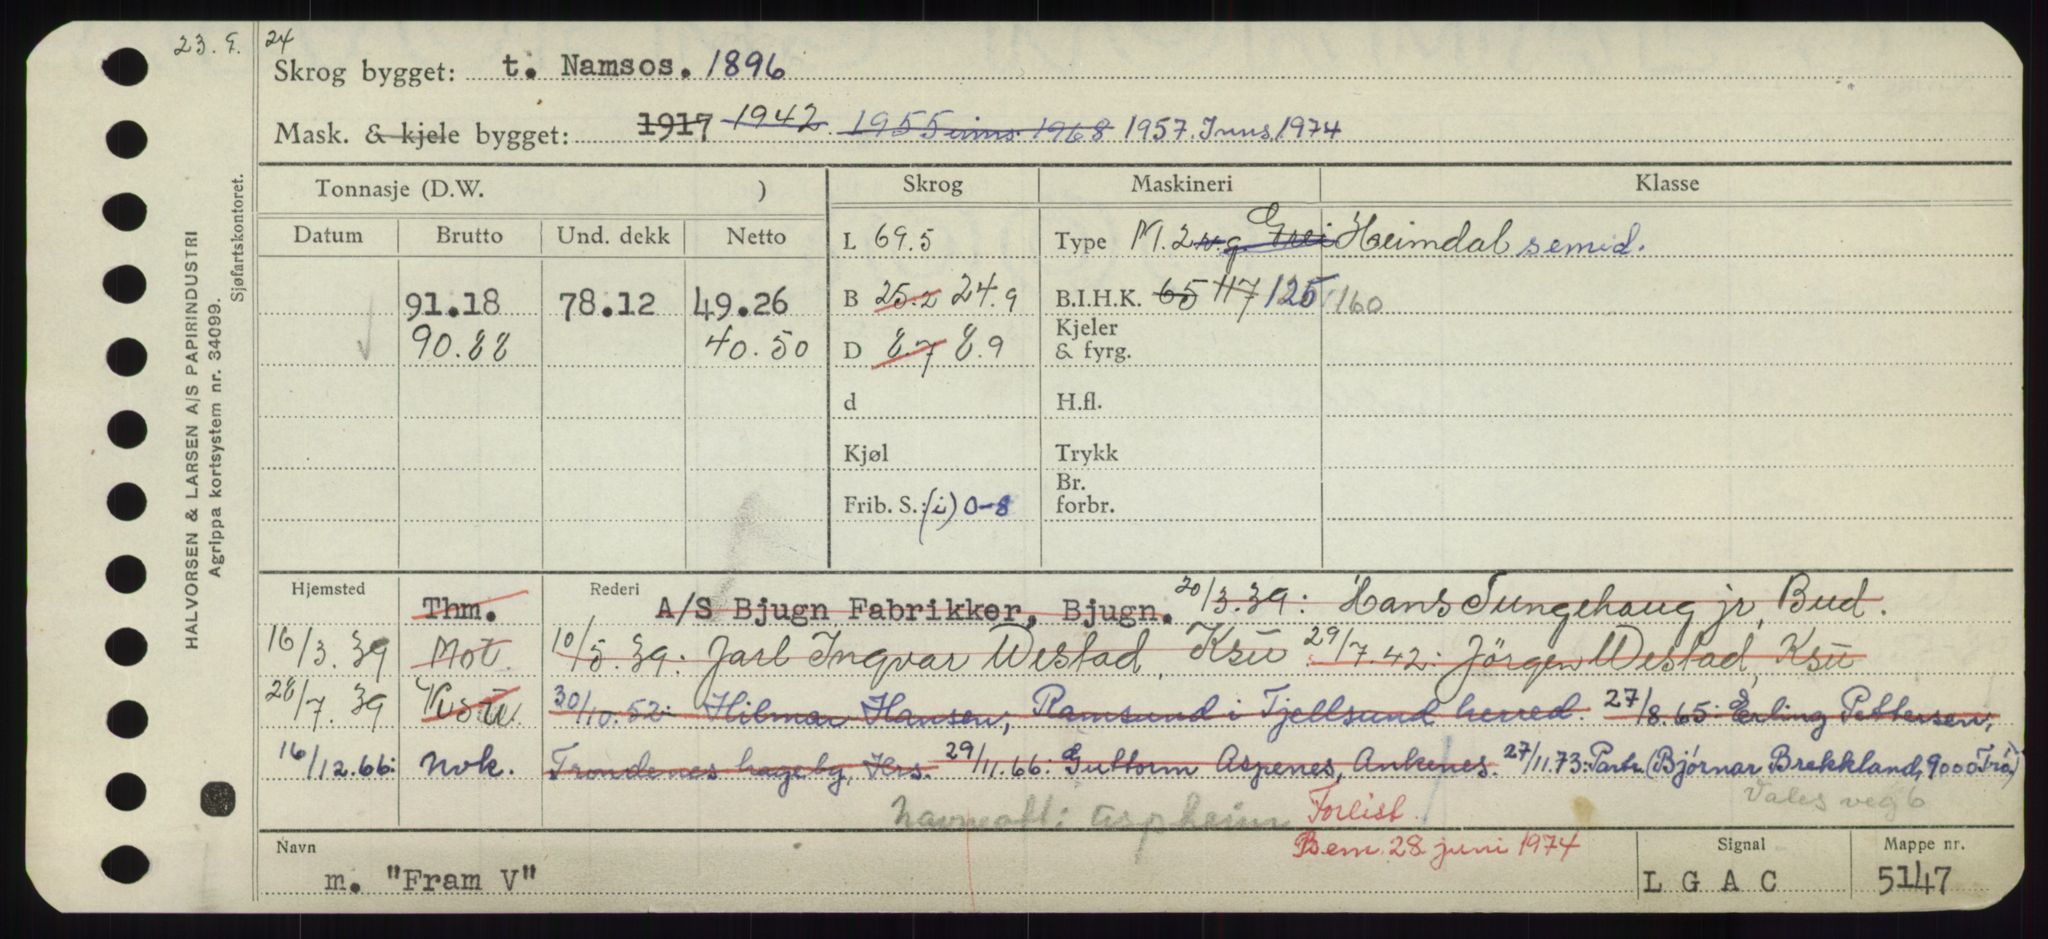 23.9. 24
Skrog bygget: t. Namsos. 1896
Mask. & kjele bygget: 1917 1942. 1955 inns. 1968 1957. Inns. 1974
Tonnasje (D.W. )
Skrog
Maskineri
Klasse
Datum
Brutto
Und. dekk
Netto
L 69.5
Type M. 2 s.g. Grei Heimdal semid.
91.18 78.12 49.26
B 25.2 24.9
B.I.H.K. 65 117 125 160
90.88 40.50
D 8.7 8.9
Kjeler
& fyrg.
d
H.fl.
Kjøl
Trykk
Frib. S.: (i) 0-8
Br.
forbr.
Hjemsted
Thm.
Rederi
A/S Bjugn Fabrikker, Bjugn. 20/3.39: Hans Tungehaug jr, Bud.
16/3.39 Mot 10/5.39: Jarl Ingvar Westad, Ksu 29/7.42: Jörgen Westad, Ksu
28/7.39 Kusu 30/10.52: Hilmar Hansen, Ramsund i Tjellsund herred. 27/8.65: Erling Pettersen,
16/12.66: Nvk. Trondenes hageby, Hrs. 29/11.66: Guttorm Aspenes, Ankenes. 27/11.73: Partr. (Bjørnar Brekkland, 9000 Trø)
Navneatt: Aspheim Forlist. Vales veg 6
Bem. 28 juni 1974
Navn
m. "Fram V"
Signal
L G A C
Mappe nr.
5147
HALVORSEN & LARSEN A/S PAPIRINDUSTRI
Agrippa kortsystem nr. 34099.
Sjøfartskontoret.